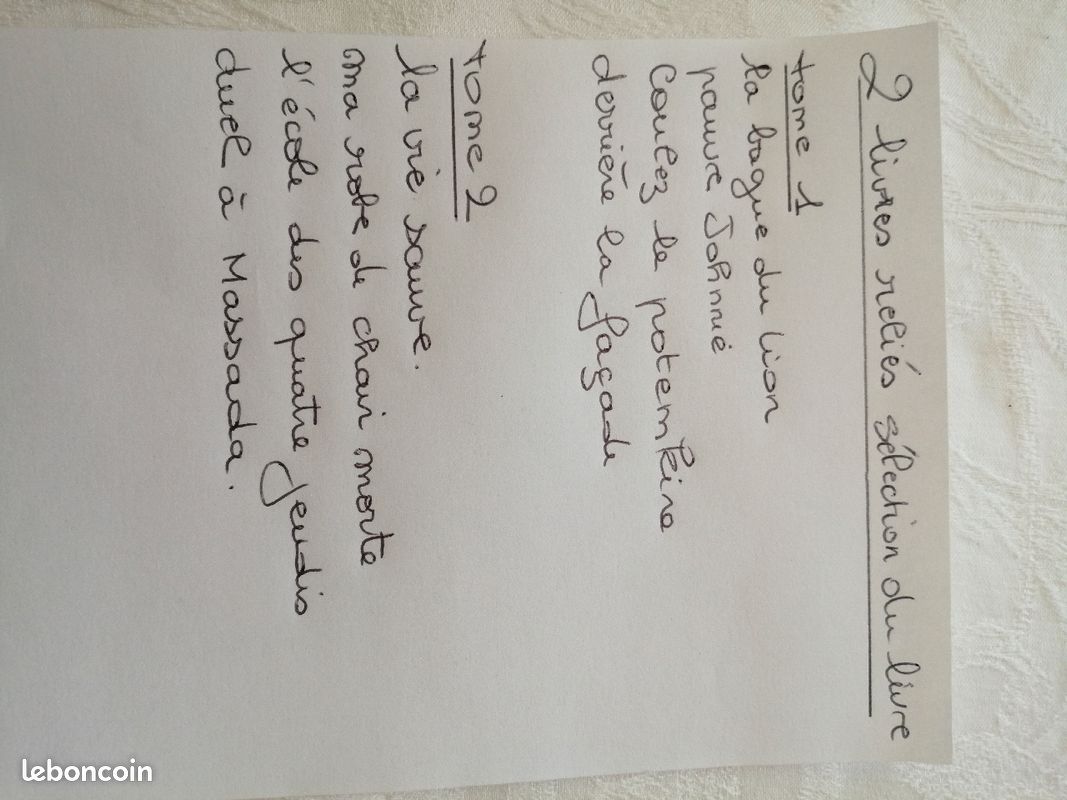 2 livres reliés sélection du livre
tome 1
la bague du lion
pauvre Johnnie
Coulez le potemkine
derrière la façade
tome 2
la vie sauve.
ma robe de chair morte
l'école des quatre jeudis
duel à Massada.
leboncoin